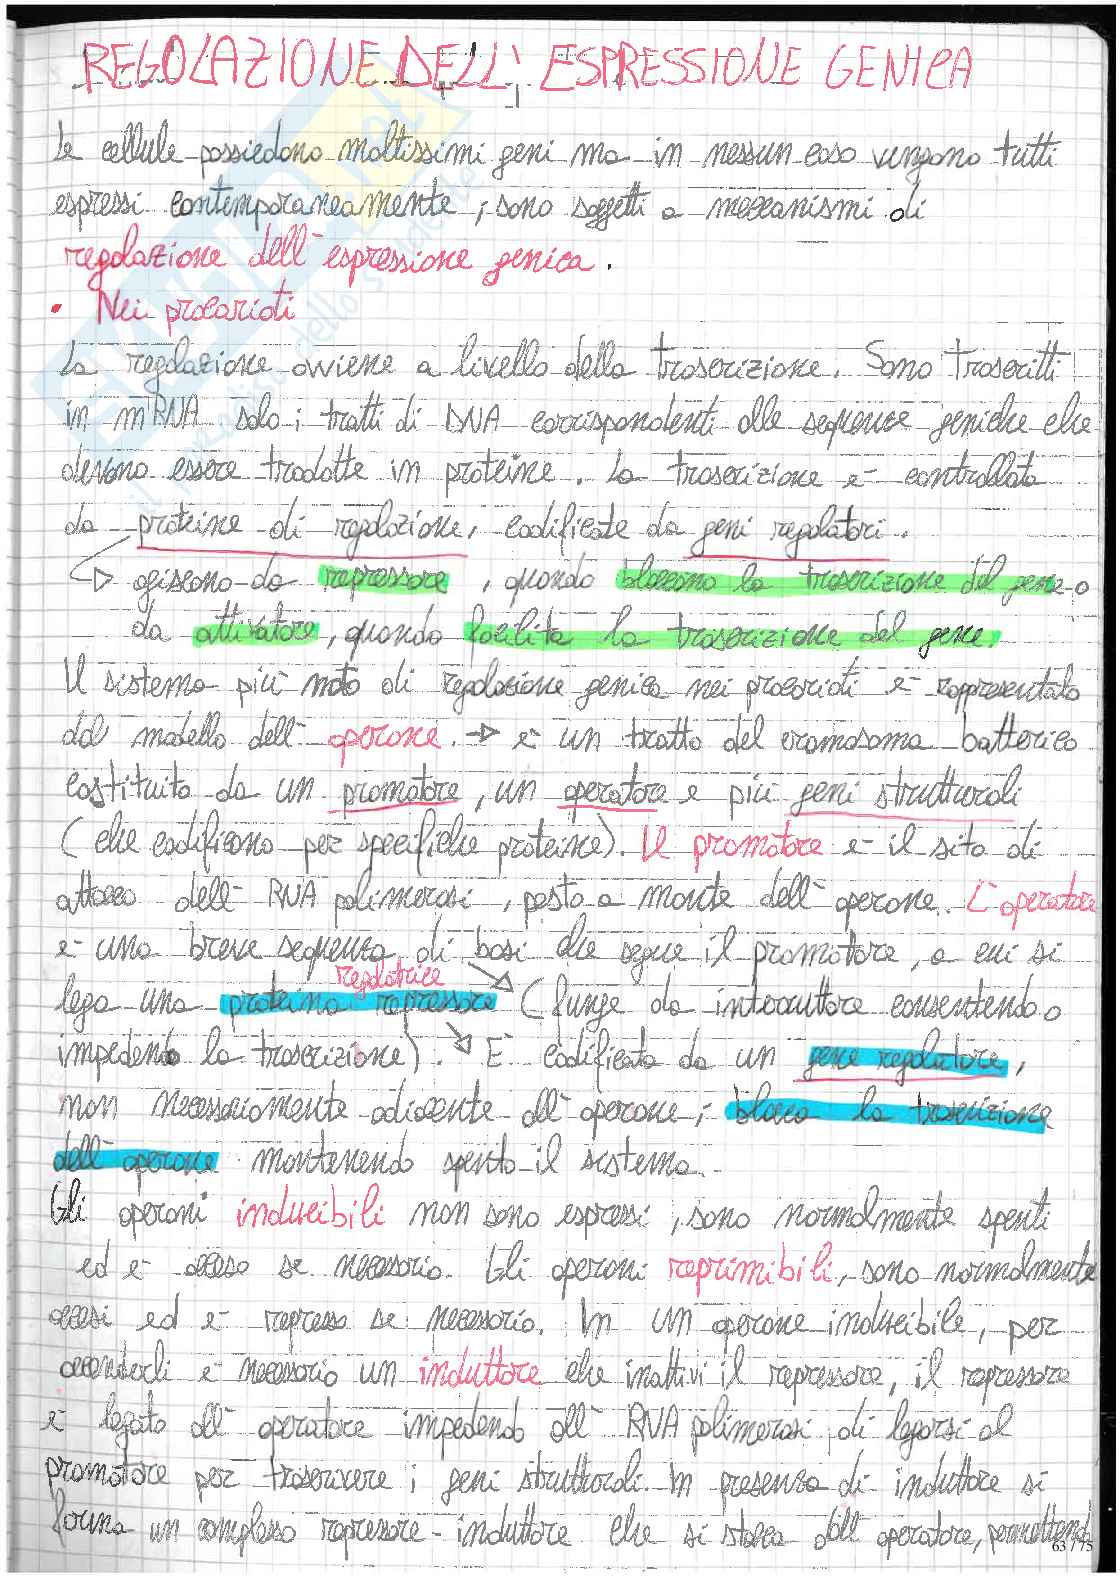 REGOLAZIONE DELL' ESPRESSIONE GENICA
Le cellule possiedono moltissimi geni ma in nessun caso vengono tutti
espressi contemporaneamente; sono soggetti a meccanismi di
regolazione dell'espressione genica.
• Nei procarioti
La regolazione avviene a livello della trascrizione. Sono trascritti
in mRNA solo i tratti di DNA corrispondenti alle sequenze geniche che
devono essere tradotte in proteine. La trascrizione è controllata
da proteine di regolazione, codificate da geni regolatori.
→ agiscono da repressore, quando bloccano la trascrizione del gene o
da attivatore, quando facilita la trascrizione del gene.
Il sistema più noto di regolazione genica nei procarioti è rappresentato
dal modello dell'operone. → è un tratto del cromosoma batterico
costituito da un promotore, un operatore e più geni strutturali
(che codificano per specifiche proteine). Il promotore è il sito di
attacco dell'RNA polimerasi, posto a monte dell'operone. L'operatore
è una breve sequenza di basi che segue il promotore, a cui si
regolatrice
lega una proteina repressore → (funge da interruttore consentendo o
impedendo la trascrizione). → E' codificata da un gene regolatore,
non necessariamente adiacente all'operone; blocca la trascrizione
dell'operone mantenendo spento il sistema.
Gli operoni inducibili non sono espressi, sono normalmente spenti
ed è acceso se necessario. Gli operoni reprimibili, sono normalmente
accesi ed è represso se necessario. In un operone inducibile, per
accenderli è necessario un induttore che inattivi il repressore, il repressore
è legato all'operatore impedendo all'RNA polimerasi di legarsi al
promotore per trascrivere i geni strutturali. In presenza di induttore si
forma un complesso repressore-induttore che si stacca dall'operatore, permettendo
63 / 75